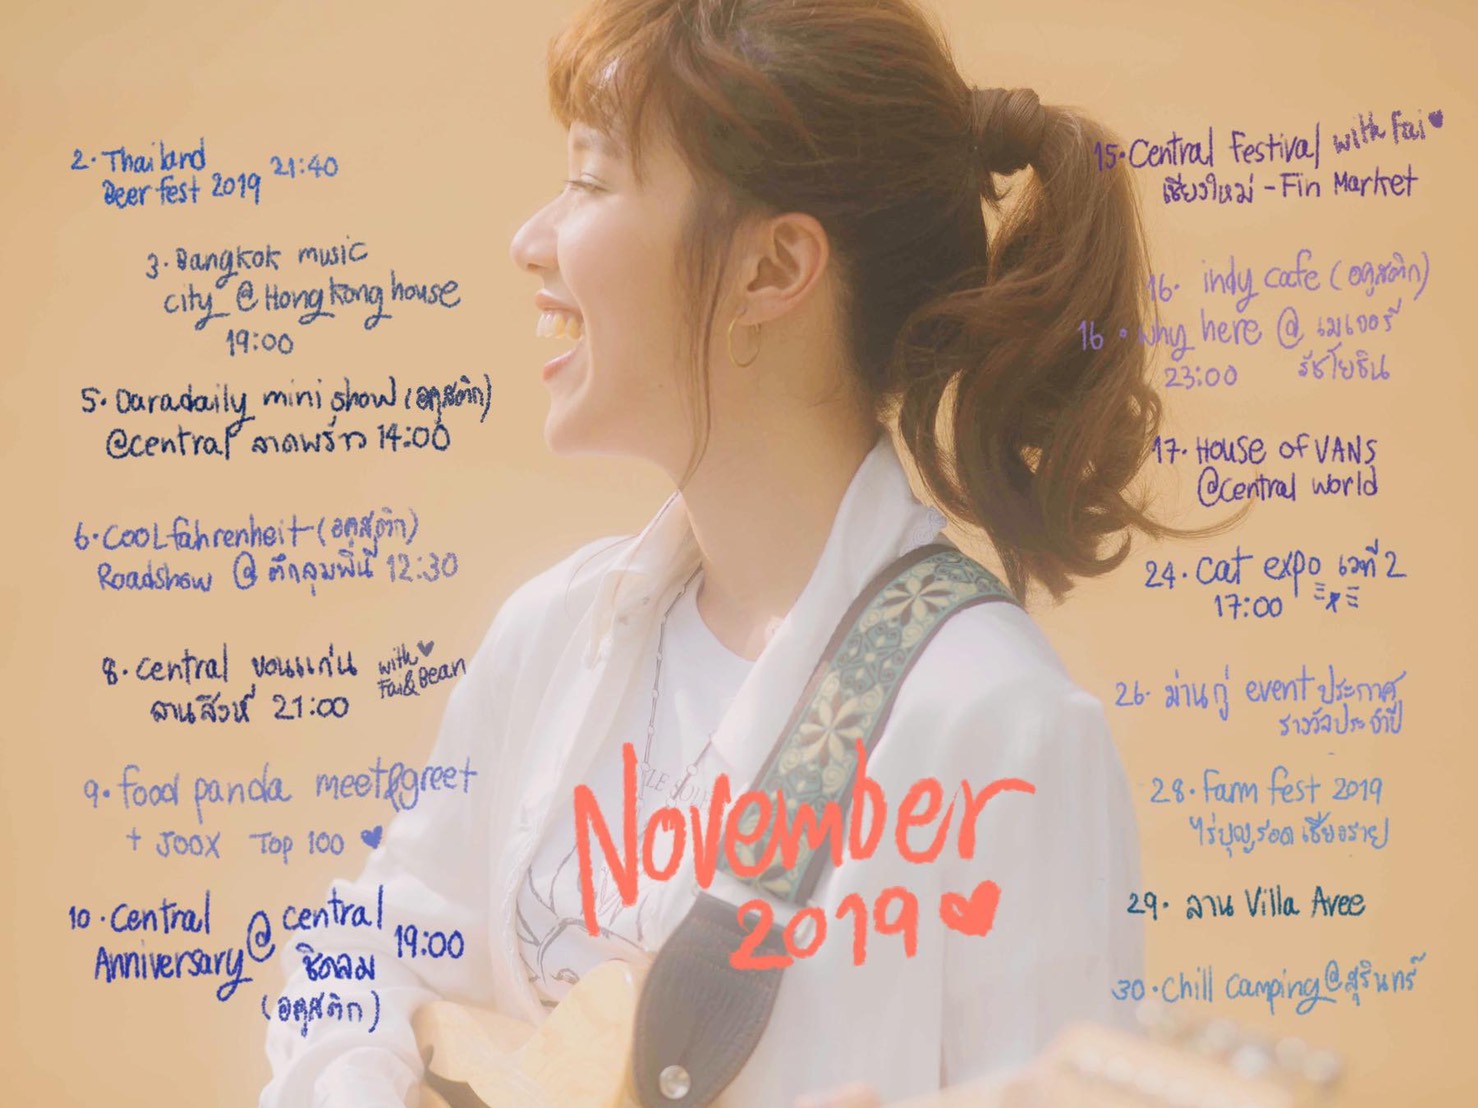 2. Thailand 21:40
Beer fest 2019
3. Bangkok music
city @ Hongkong house
19:00
5. Daradaily mini show (อคูสติก)
@central ลาดพร้าว 14:00
6. COOLfahrenheit (อคูสติก)
Roadshow @ ตึกลุมพินี 12:30
8. Central ขอนแก่น with
Fai & Bean
ลานสิงห์ 21:00
9. food panda meet&greet
+ JOOX Top 100
10. Central @ central 19:00
Anniversary ชิดลม
(อคูสติก)
November
2019
15. Central Festival with Fai
เชียงใหม่ - Fin Market
16. indy cafe (อคูสติก)
16. why here @ เมเจอร์
23:00 รัชโยธิน
17. House of VANS
@central world
24. Cat expo เวที 2
17:00
26. ม่านกู่ event ประกาศ
รางวัลประจำปี
28. Farm fest 2019
ไร่บุญรอด เชียงราย
29. ลาน Villa Avee
30. Chill Camping @สุรินทร์